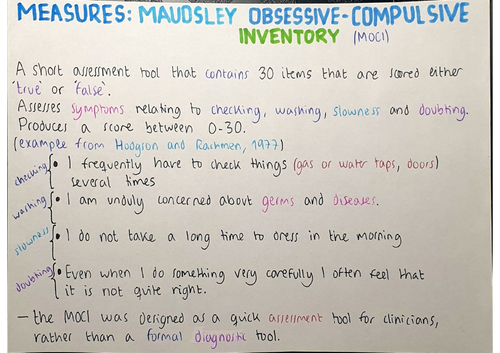 MEASURES: MAUDSLEY OBSESSIVE-COMPULSIVE
INVENTORY (MOCI)
A short assessment tool that contains 30 items that are scored either
'true' or 'false'.
Assesses symptoms relating to checking, washing, slowness and doubting.
Produces a score between 0-30.
(example from Hodgson and Rachmen, 1977)
checking { • I frequently have to check things (gas or water taps, doors)
several times
washing { • I am unduly concerned about germs and diseases.
slowness { • I do not take a long time to dress in the morning
doubting { • Even when I do something very carefully I often feel that
it is not quite right.
— the MOCI was designed as a quick assessment tool for clinicians,
rather than a formal diagnostic tool.